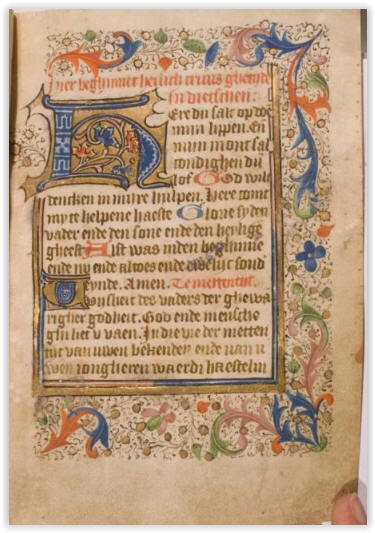 hier beghinnet heilich cruus ghetide
in dietschen.
Ere du salt op doe
miin lippen. En
miin mont sal
condighen diin
lof. God wilt
dencken in mire hulpen. Here come
my te helpene haeste Glorie sy den
vader ende den sone ende den heylige
gheest Alst was inden beghinne
ende nv ende altoes ende ewelijc sond
ende. Amen. Te metten tijt
vaders der ghewa
righer godheit. God ende mensche
In die vre der metten
van uwen bekenden ende van u
wen iongheren